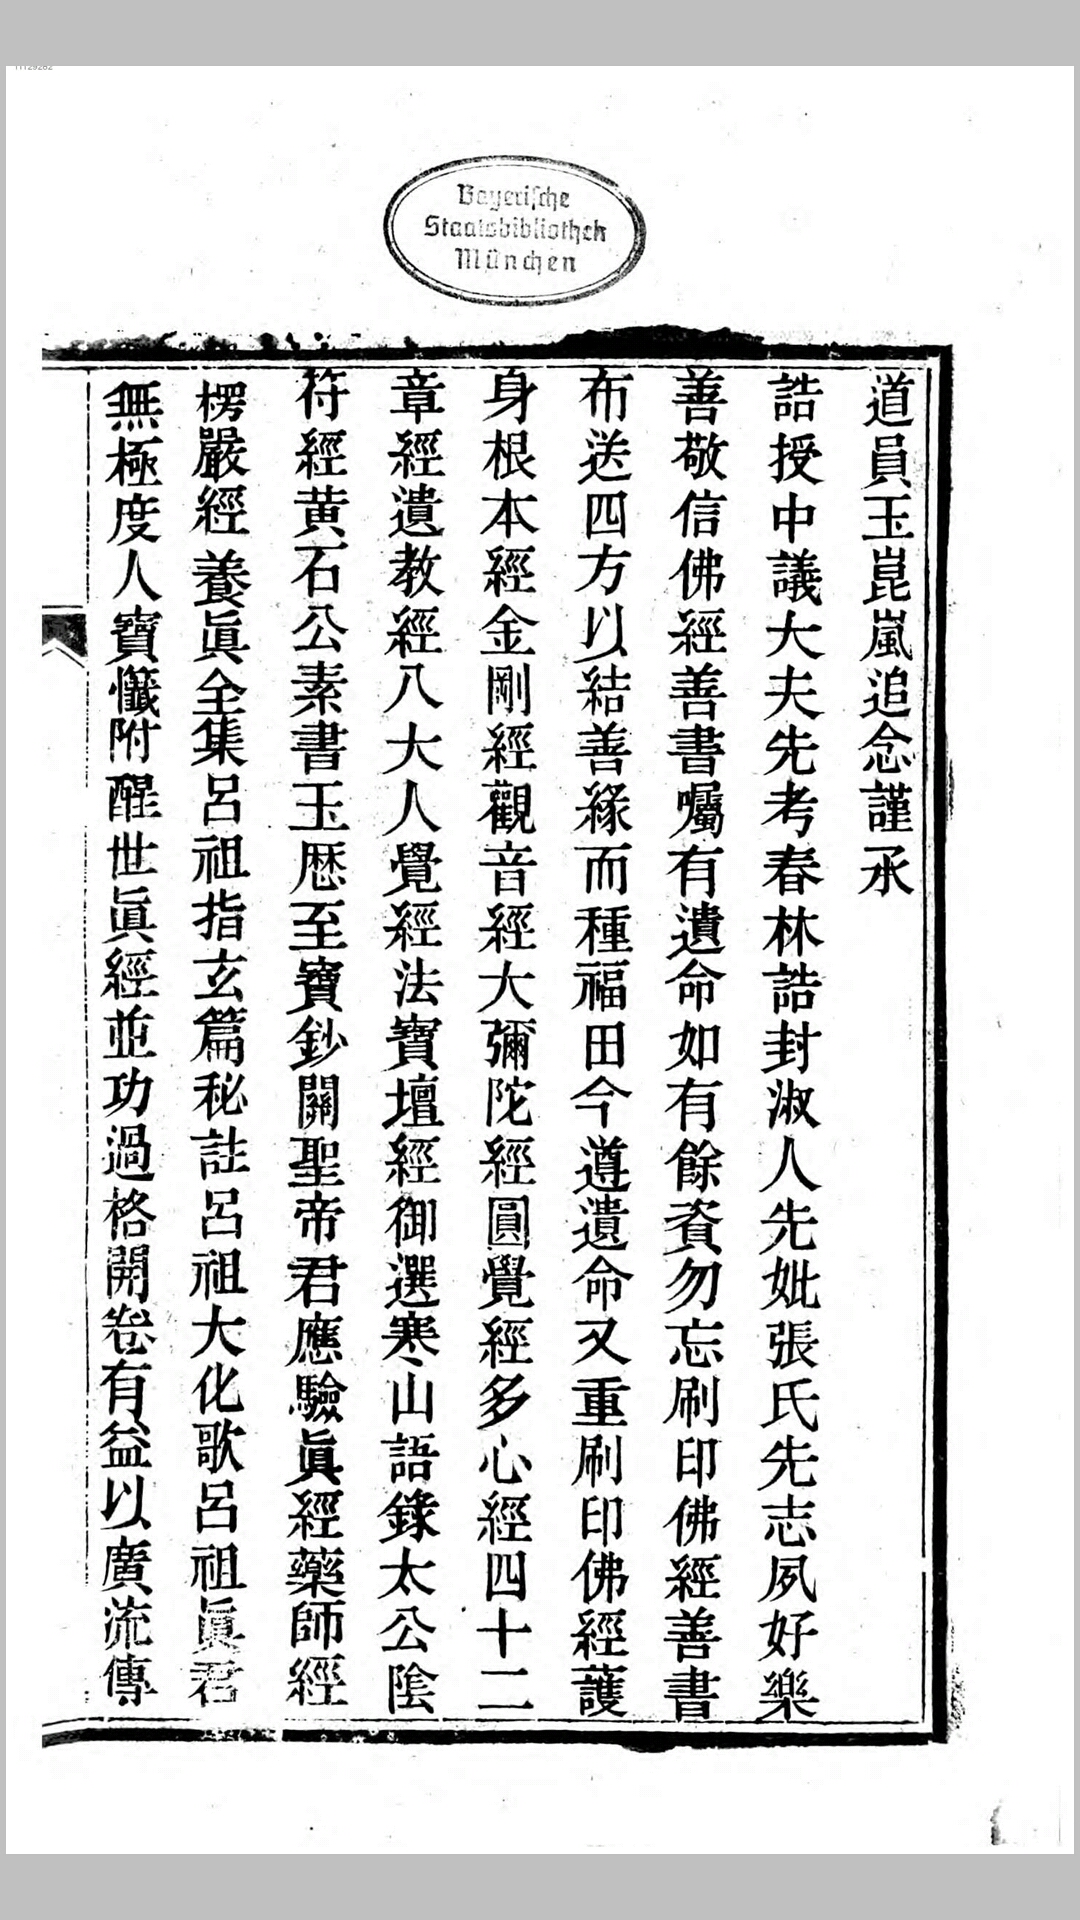 Bayerische
Staatsbibliothek
München
道員玉崑嵐追念謹承
誥授中議大夫先考春林誥封淑人先妣張氏先志夙好樂
善敬信佛經善書囑有遺命如有餘資勿忘刷印佛經善書
布送四方以結善緣而種福田今遵遺命又重刷印佛經護
身根本經金剛經觀音經大彌陀經圓覺經多心經四十二
章經遺教經八大人覺經法寶壇經御選寒山語錄太公陰
符經黄石公素書玉歷至寶鈔關聖帝君應驗眞經藥師經
楞嚴經養眞全集呂祖指玄篇秘註呂祖大化歌呂祖眞君
無極度人寶懺附醒世眞經並功過格開卷有益以廣流傳